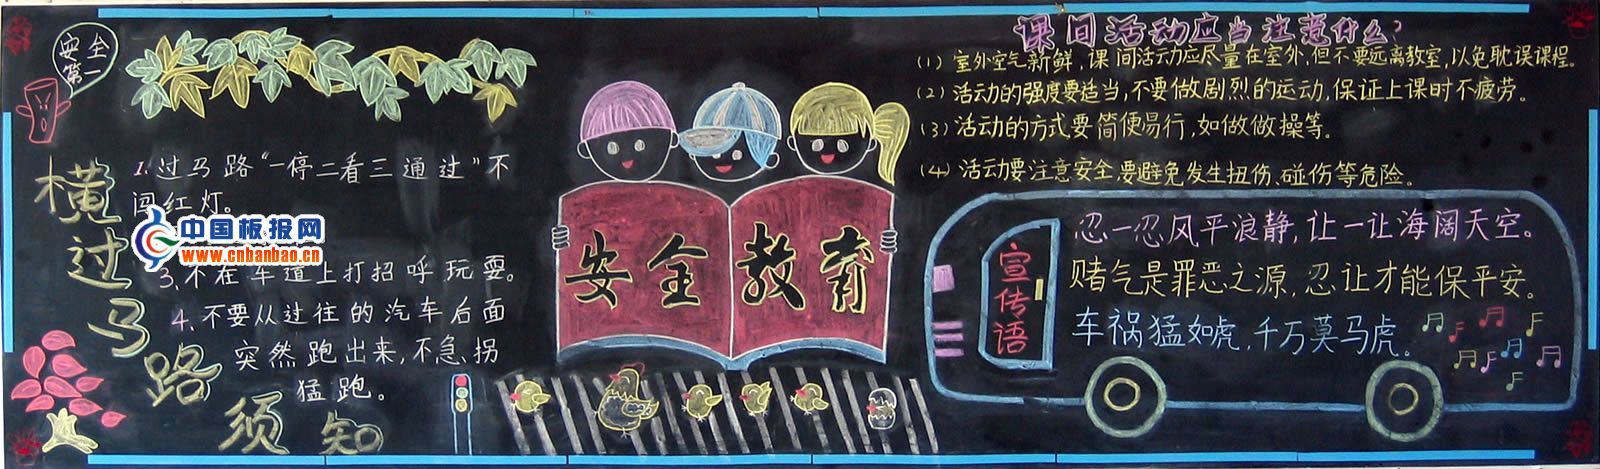 安全
第一
横过马路须知
1.过马路“一停二看三通过”不
闯红灯。
中国板报网
www.cnbanbao.cn
3、不在车道上打招呼玩耍。
4、不要从过往的汽车后面
突然跑出来,不急、拐
猛跑。
安全教育
课间活动应当注意什么?
(1) 室外空气新鲜,课间活动应尽量在室外,但不要远离教室,以免耽误课程。
(2) 活动的强度要适当,不要做剧烈的运动,保证上课时不疲劳。
(3) 活动的方式要简便易行,如做做操等。
(4) 活动要注意安全,要避免发生扭伤、碰伤等危险。
宣传语
忍一忍风平浪静,让一让海阔天空。
赌气是罪恶之源,忍让才能保平安。
车祸猛如虎,千万莫马虎。